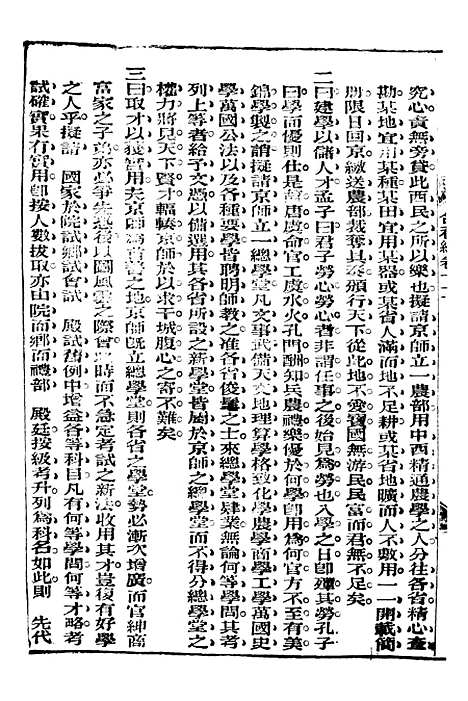 究心責無旁貸此西民之所以樂也擬請京師立一農部用中西精通農學之人分往各省精心查
勘某地宜用某種某田宜用某器或某省人滿而地不足耕或某省地曠而人不敷用一一開載簡
册限日回京繳送農部裁奪具奏頒行天下從此地不愛寶國無游民民富而君無不足矣
二曰建學以儲人才孟子曰君子勞心勞心者非謂任事之後始見為勞也入學之日即殫其勞孔子
曰學而優則仕是葢唐虞命官工虞水火孔門酬知兵農禮樂優於何學即用為何官方不至有美
錦學製之誚擬請京師立一總學堂凡文事武備天文地理算學格致化學農學商學工學萬國史
學萬國公法以及各種要學皆聘明師教之准各省俊髦之士來總學堂肄業無論何等學問其考
列上等者給予文憑以備選用其各省所設之新學堂皆屬於京師之總學堂而不得分總學堂之
權力將見天下賢才輻輳京師於以求干城腹心之寄不難矣
三曰取才以獲實用夫京師為首善之地京師既立總學堂則各省之學堂勢必漸次增廣而官紳商
富家之子弟亦必爭先恐後以圖風雲之際會當此時而不急定考試之新法收用其才豈復有好學
之人乎擬請 國家於院試鄉試會試 殿試舊例中增益各等科目凡有何等學問何等才略考
試確實果有實用即按人數拔取亦由院而鄉而禮部 殿廷按級考升列為科名如此則 先代